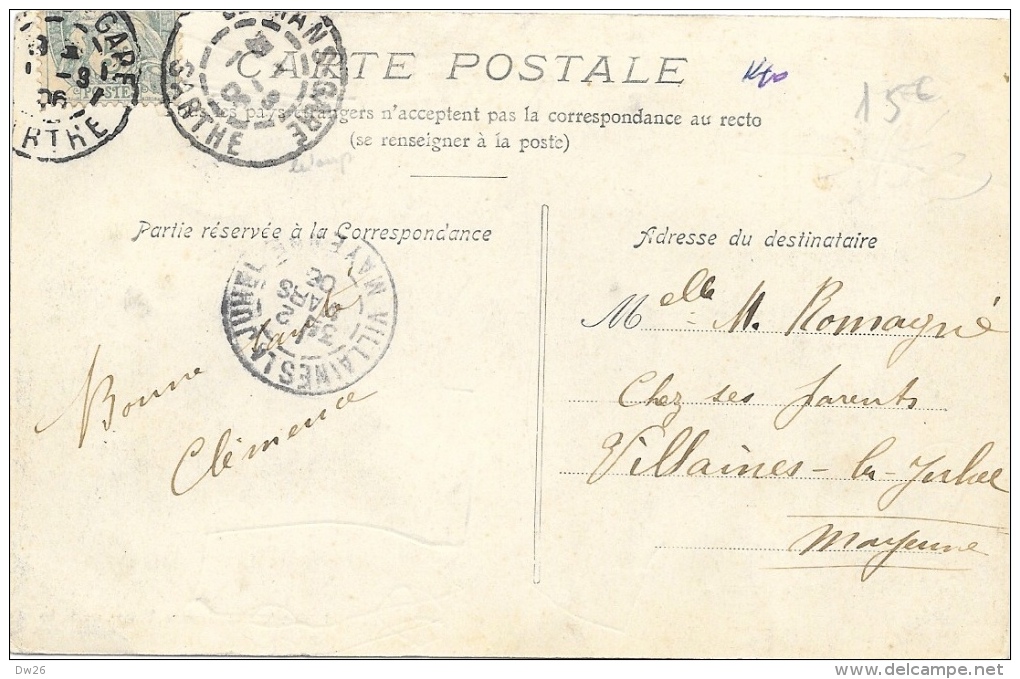 GARE
POSTE
06
RTHE
MANS-GARE
SARTHE
CARTE POSTALE
pays étrangers n'acceptent pas la correspondance au recto
(se renseigner à la poste)
15€
Partie réservée à la Correspondance
Adresse du destinataire
VILLAINES LA JUHEL
MAYENNE
Bonne santé
Clémence
Melle M. Romagné
Chez ses parents
Villaines-la-Juhel
Mayenne
Dw26
www.delcampe.net